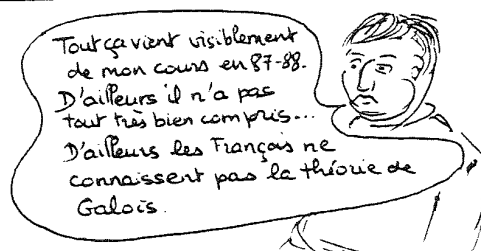 Tout ça vient visiblement
de mon cours en 87-88.
D'ailleurs il n'a pas
tout très bien compris...
D'ailleurs les Français ne
connaissent pas la théorie de
Galois.